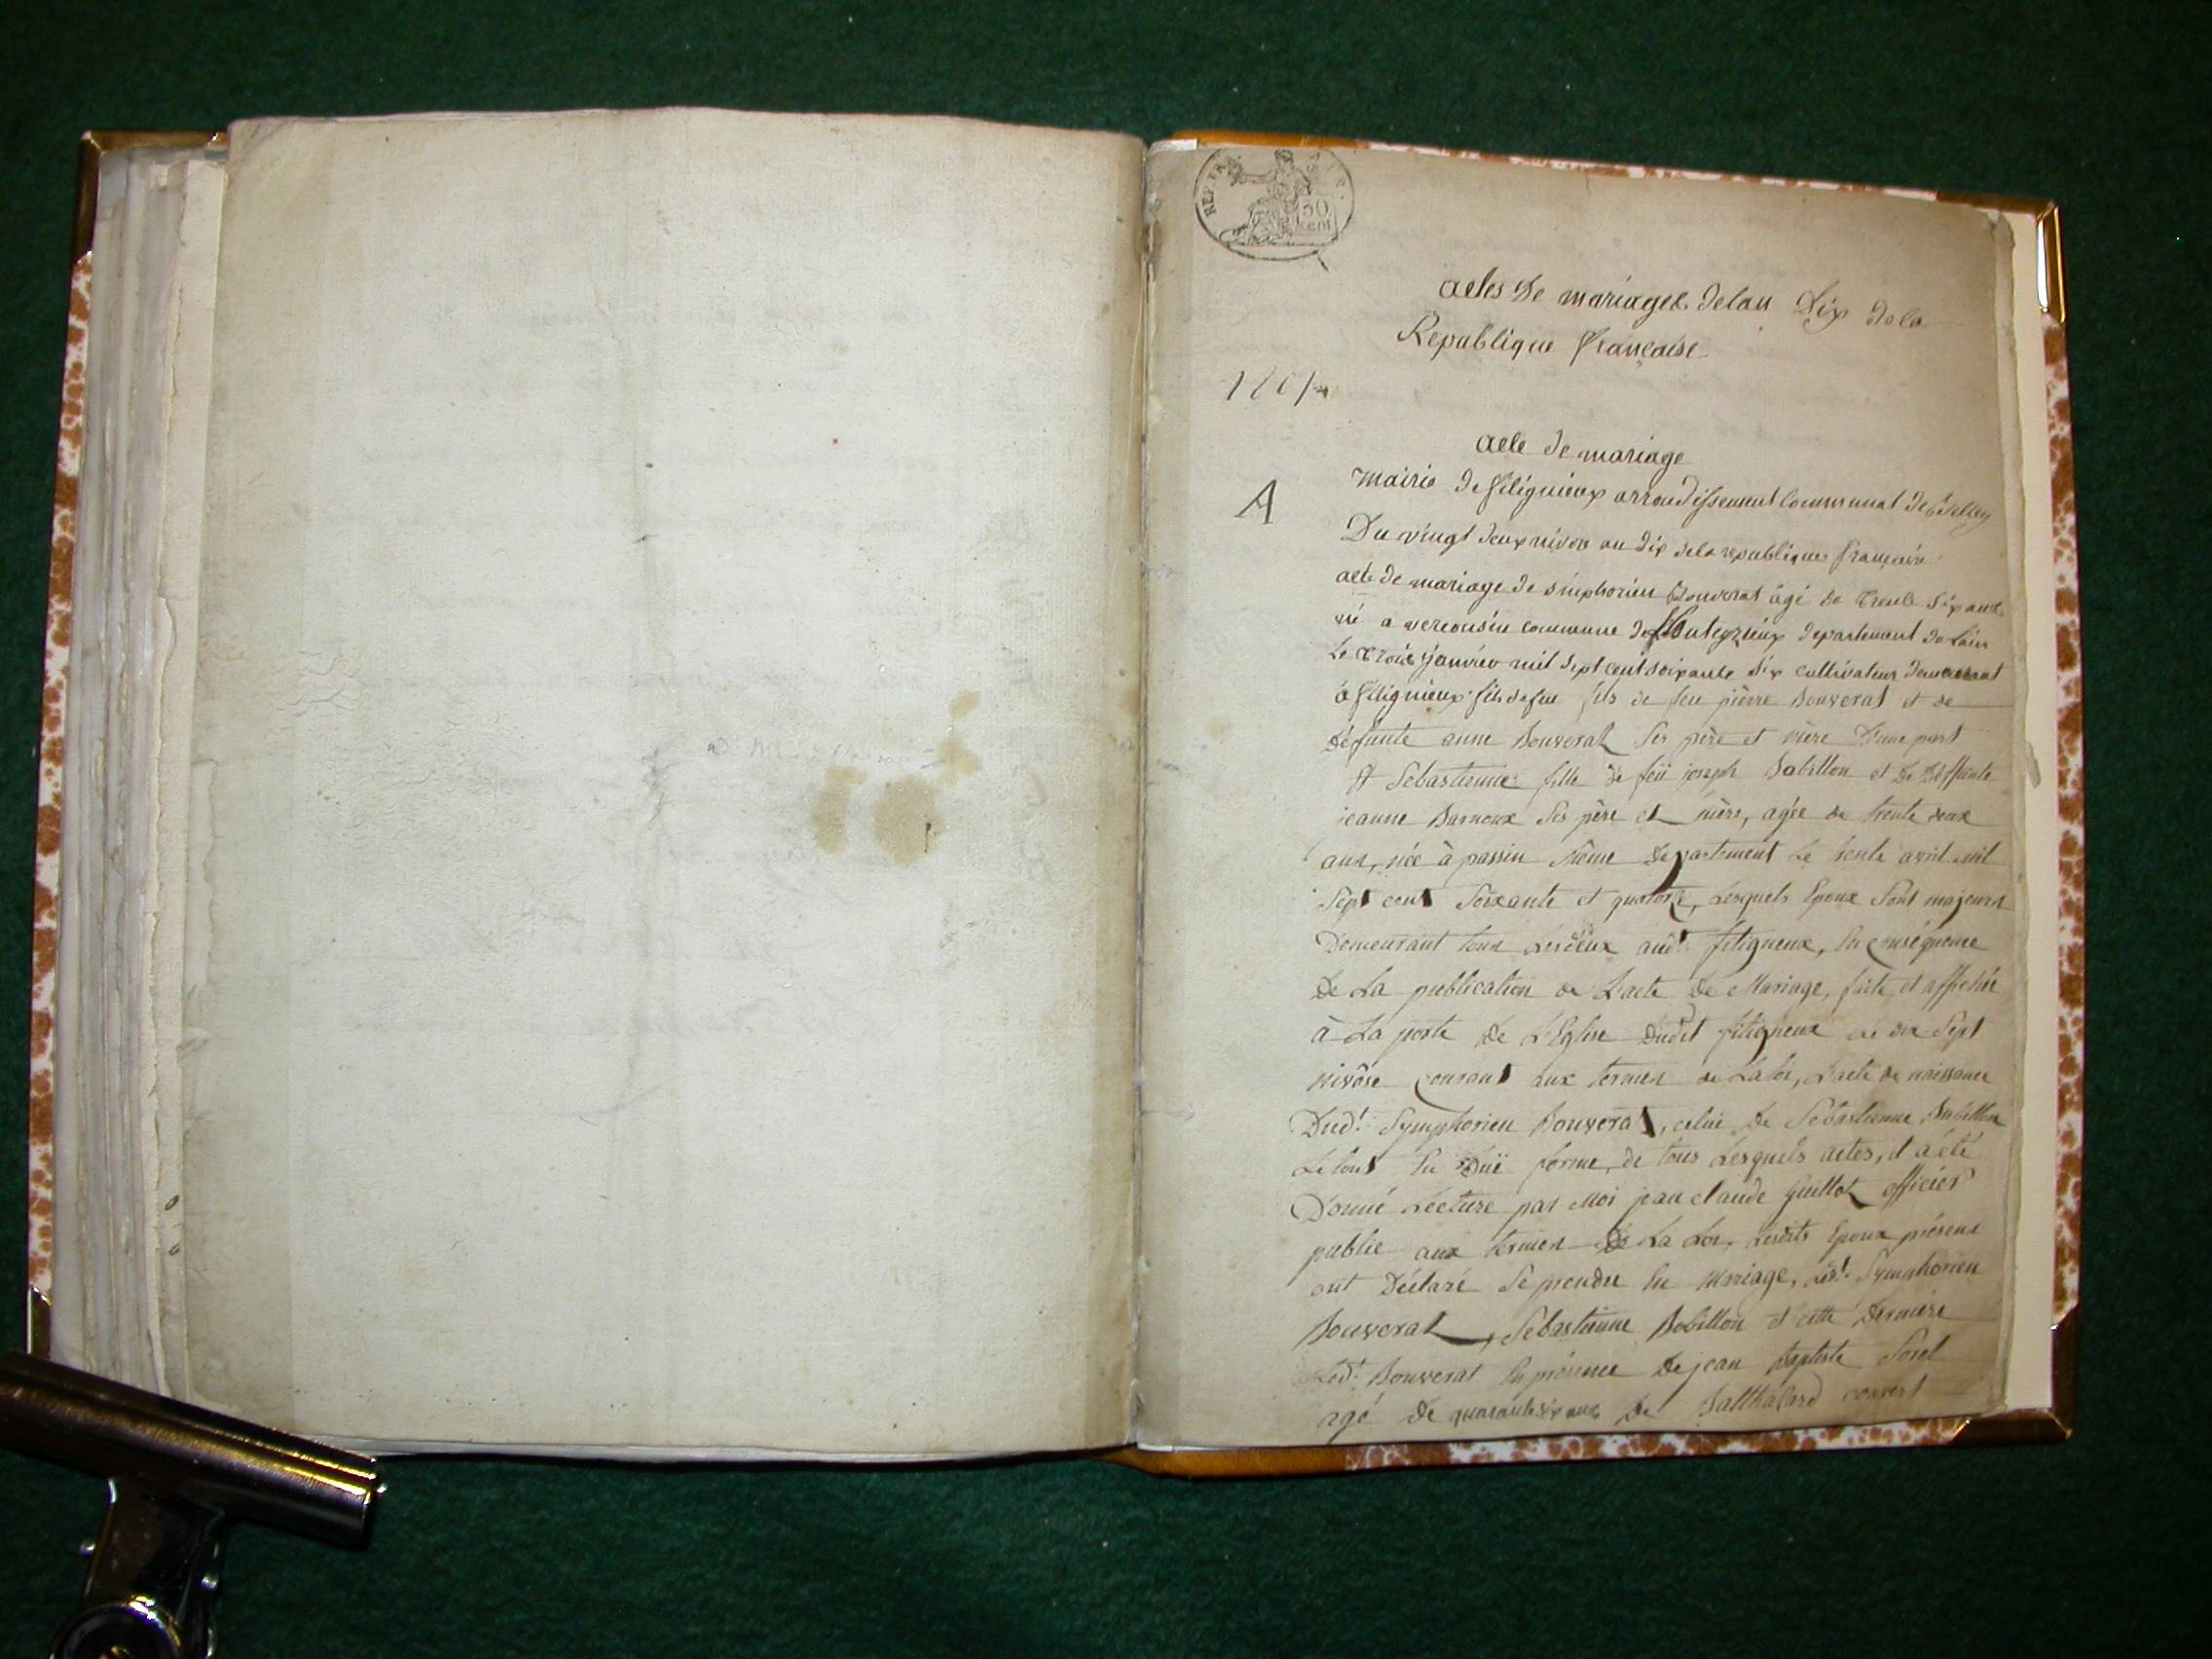 REP. FRA
50
cent
actes de mariages delan Dix dela
Republique française
180
acte de mariage
A
mairie de filignieux arrondissement communal de Belley
Du vingt deux nivose an dix dela republique française
acte de mariage de simphorien Bouverat âgé de trente six ans
né a vercousin commune de departement de Lain
Le trois janvier mil sept cent soixante six cultivateur demeurant
a filignieux fils de feu fils de feu pierre Bouverat et de
défunte anne Bouverat Ses père et mère D'une part
Et Sebastienne fille de feü joseph Babillon et de Déffunte
jeanne Barnoux Ses père et mère, agée de trente deux
ans, née à passin Même département Le trente avril mil
Sept cent Soixante et quatorze, Lesquels Epoux Sont majeurs
Demeurant tous Lesdeux aud.t filigneux, En conséquence
de La publication de L'acte de Mariage, faite, et affichée
à La porte de L'Eglise Dudit filigneux Le dix Sept
nivôse courant aux termes de La loi, L'acte de naissance
Dud.t Symphorien Bouverat, celui de Sebastienne Babillon
Le tout En düe forme, de tous Lesquels actes, il a été
Donné Lecture par Moi jean claude Guillot officier
public aux termes de La Loi, Lesdits Epoux présens
ont Déclaré Se prendre En Mariage, Led.t Symphorien
Bouverat, Sebastienne Bobillon et cette dernière
Led.t Bouverat En présence De jean Baptiste Sorel
agé de quarante six ans de